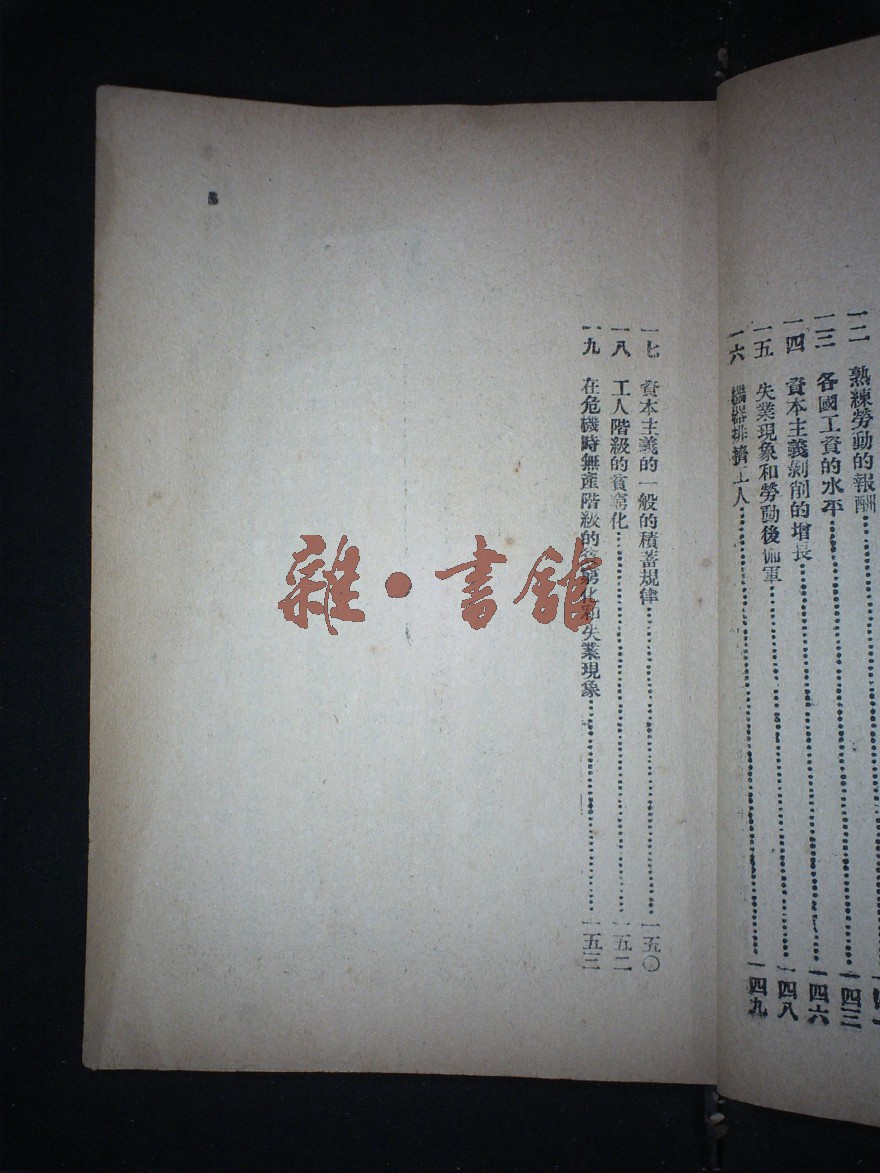 一二 熟練勞動的報酬
一三 各國工資的水平………一四三
一四 資本主義剝削的增長………一四六
一五 失業現象和勞動後備軍………一四八
一六 機器排擠工人………一四九
一七 資本主義的一般的積蓄規律………一五〇
一八 工人階級的貧窮化………一五二
一九 在危機時無產階級的貧窮化和失業現象………一五三
雜·書館